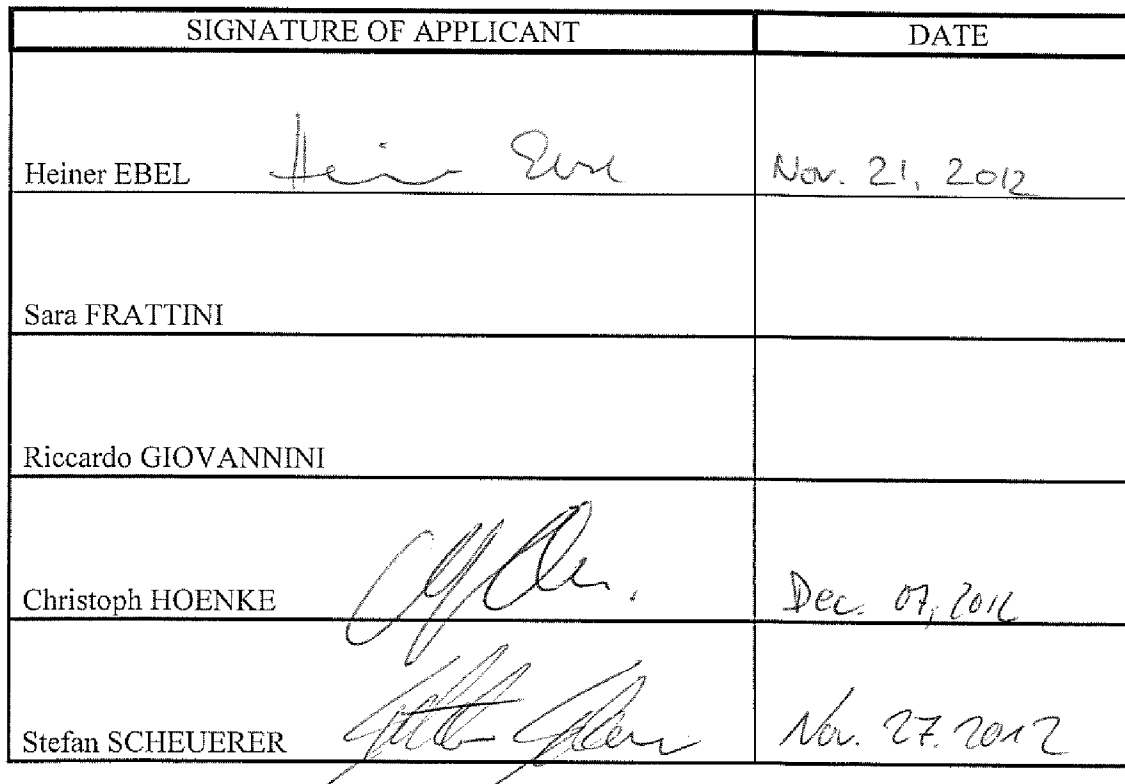 SIGNATURE OF APPLICANT DATE
Heiner EBEL Heiner Ebel Nov. 21, 2012
Sara FRATTINI
Riccardo GIOVANNINI
Christoph HOENKE Dec. 07, 2012
Stefan SCHEUERER Nov. 27. 2012